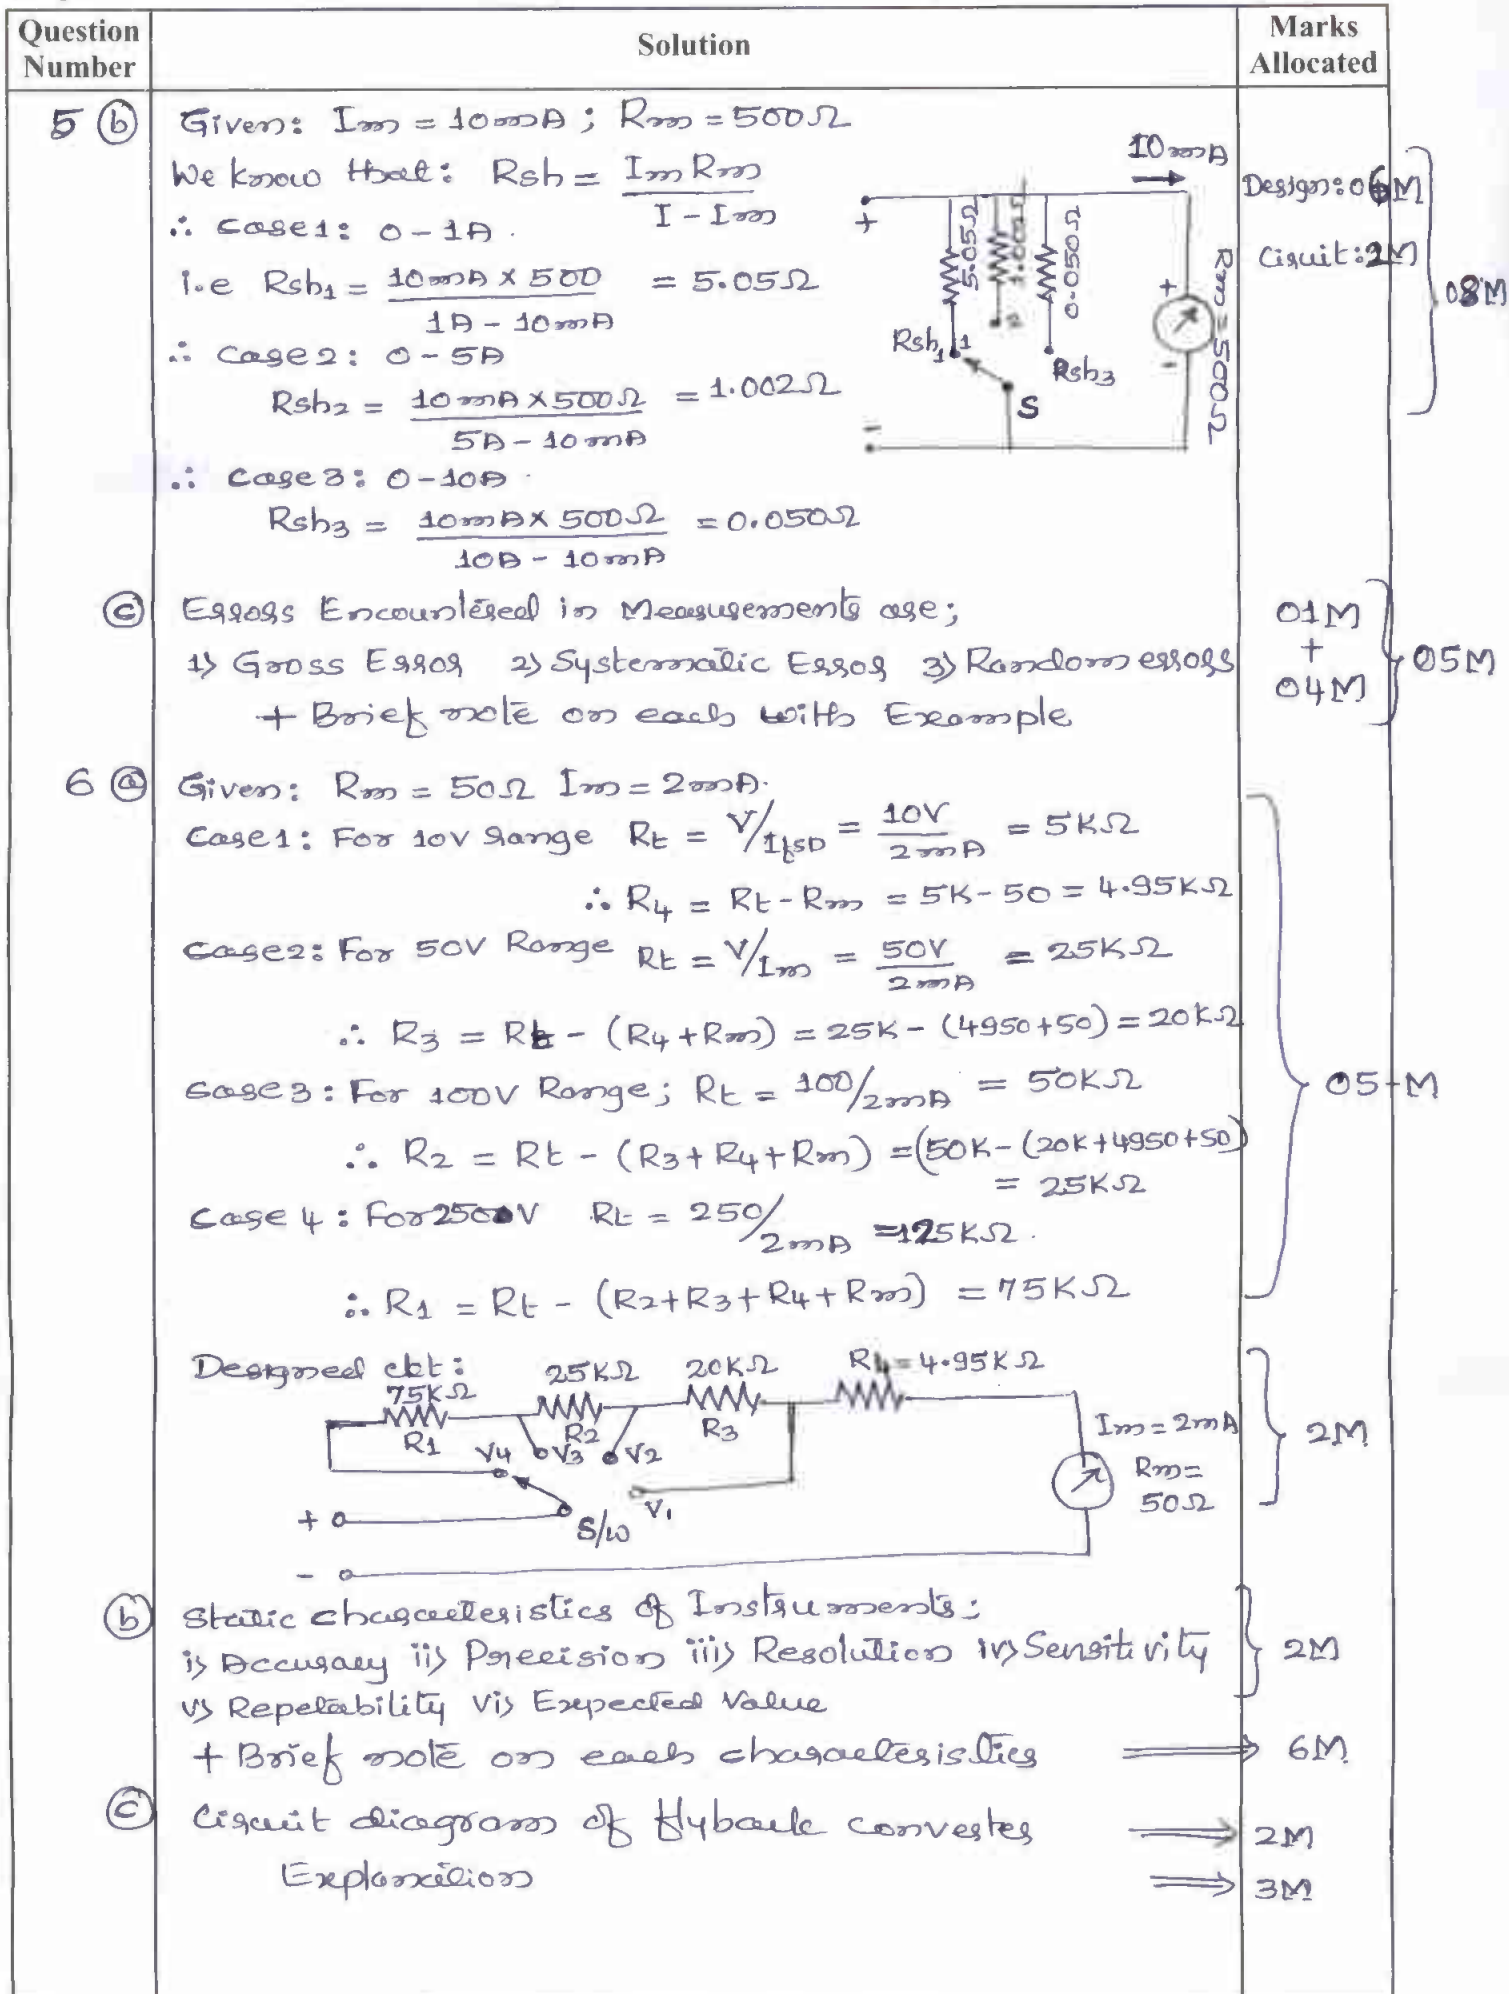 Question Number
Solution
Marks Allocated
5 (b)
Given: Im = 10mA ; Rm = 500Ω
We know that: Rsh = Im Rm / I - Im
∴ case1: 0 - 1A.
i.e Rsh1 = 10mA X 500 / 1A - 10mA = 5.05Ω
∴ case2: 0 - 5A
Rsh2 = 10mA X 500Ω / 5A - 10mA = 1.002Ω
∴ case3: 0 - 10A.
Rsh3 = 10mA X 500Ω / 10A - 10mA = 0.050Ω
10mA
+
5.05Ω
1.002Ω
0.050Ω
+
Rm = 500Ω
Rsh1
1
2
Rsh3
-
S
-
Design: 06M
Circuit: 2M
08M
(c)
Errors Encountered in Measurements are;
1) Gross Error 2) Systematic Error 3) Random errors
+ Brief note on each with Example
01M
+
04M
05M
6 (a)
Given: Rm = 50Ω Im = 2mA.
Case1: For 10V range Rt = V/Ifsd = 10V/2mA = 5KΩ
∴ R4 = Rt - Rm = 5K - 50 = 4.95KΩ
Case2: For 50V Range Rt = V/Im = 50V/2mA = 25KΩ
∴ R3 = Rt - (R4 + Rm) = 25K - (4950+50) = 20KΩ
Case3: For 100V Range; Rt = 100/2mA = 50KΩ
∴ R2 = Rt - (R3+R4+Rm) = (50K - (20K+4950+50)
= 25KΩ
Case 4: For 250V Rt = 250/2mA = 125KΩ.
∴ R1 = Rt - (R2+R3+R4+Rm) = 75KΩ
05M
Designed ckt:
75KΩ
25KΩ
20KΩ
R4 = 4.95KΩ
R1
R2
R3
V4
V3
V2
V1
S/W
+
-
Im = 2mA
Rm =
50Ω
2M
(b)
Static characteristics of Instruments:
i) Accuracy ii) Precision iii) Resolution iv) Sensitivity
v) Repetability vi) Expected Value
2M
+ Brief note on each characteristics ⟹ 6M
(c)
Circuit diagram of flyback converter ⟹ 2M
Explanation ⟹ 3M